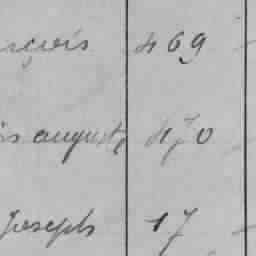 nçois 469
is auguste 470
Joseph 17